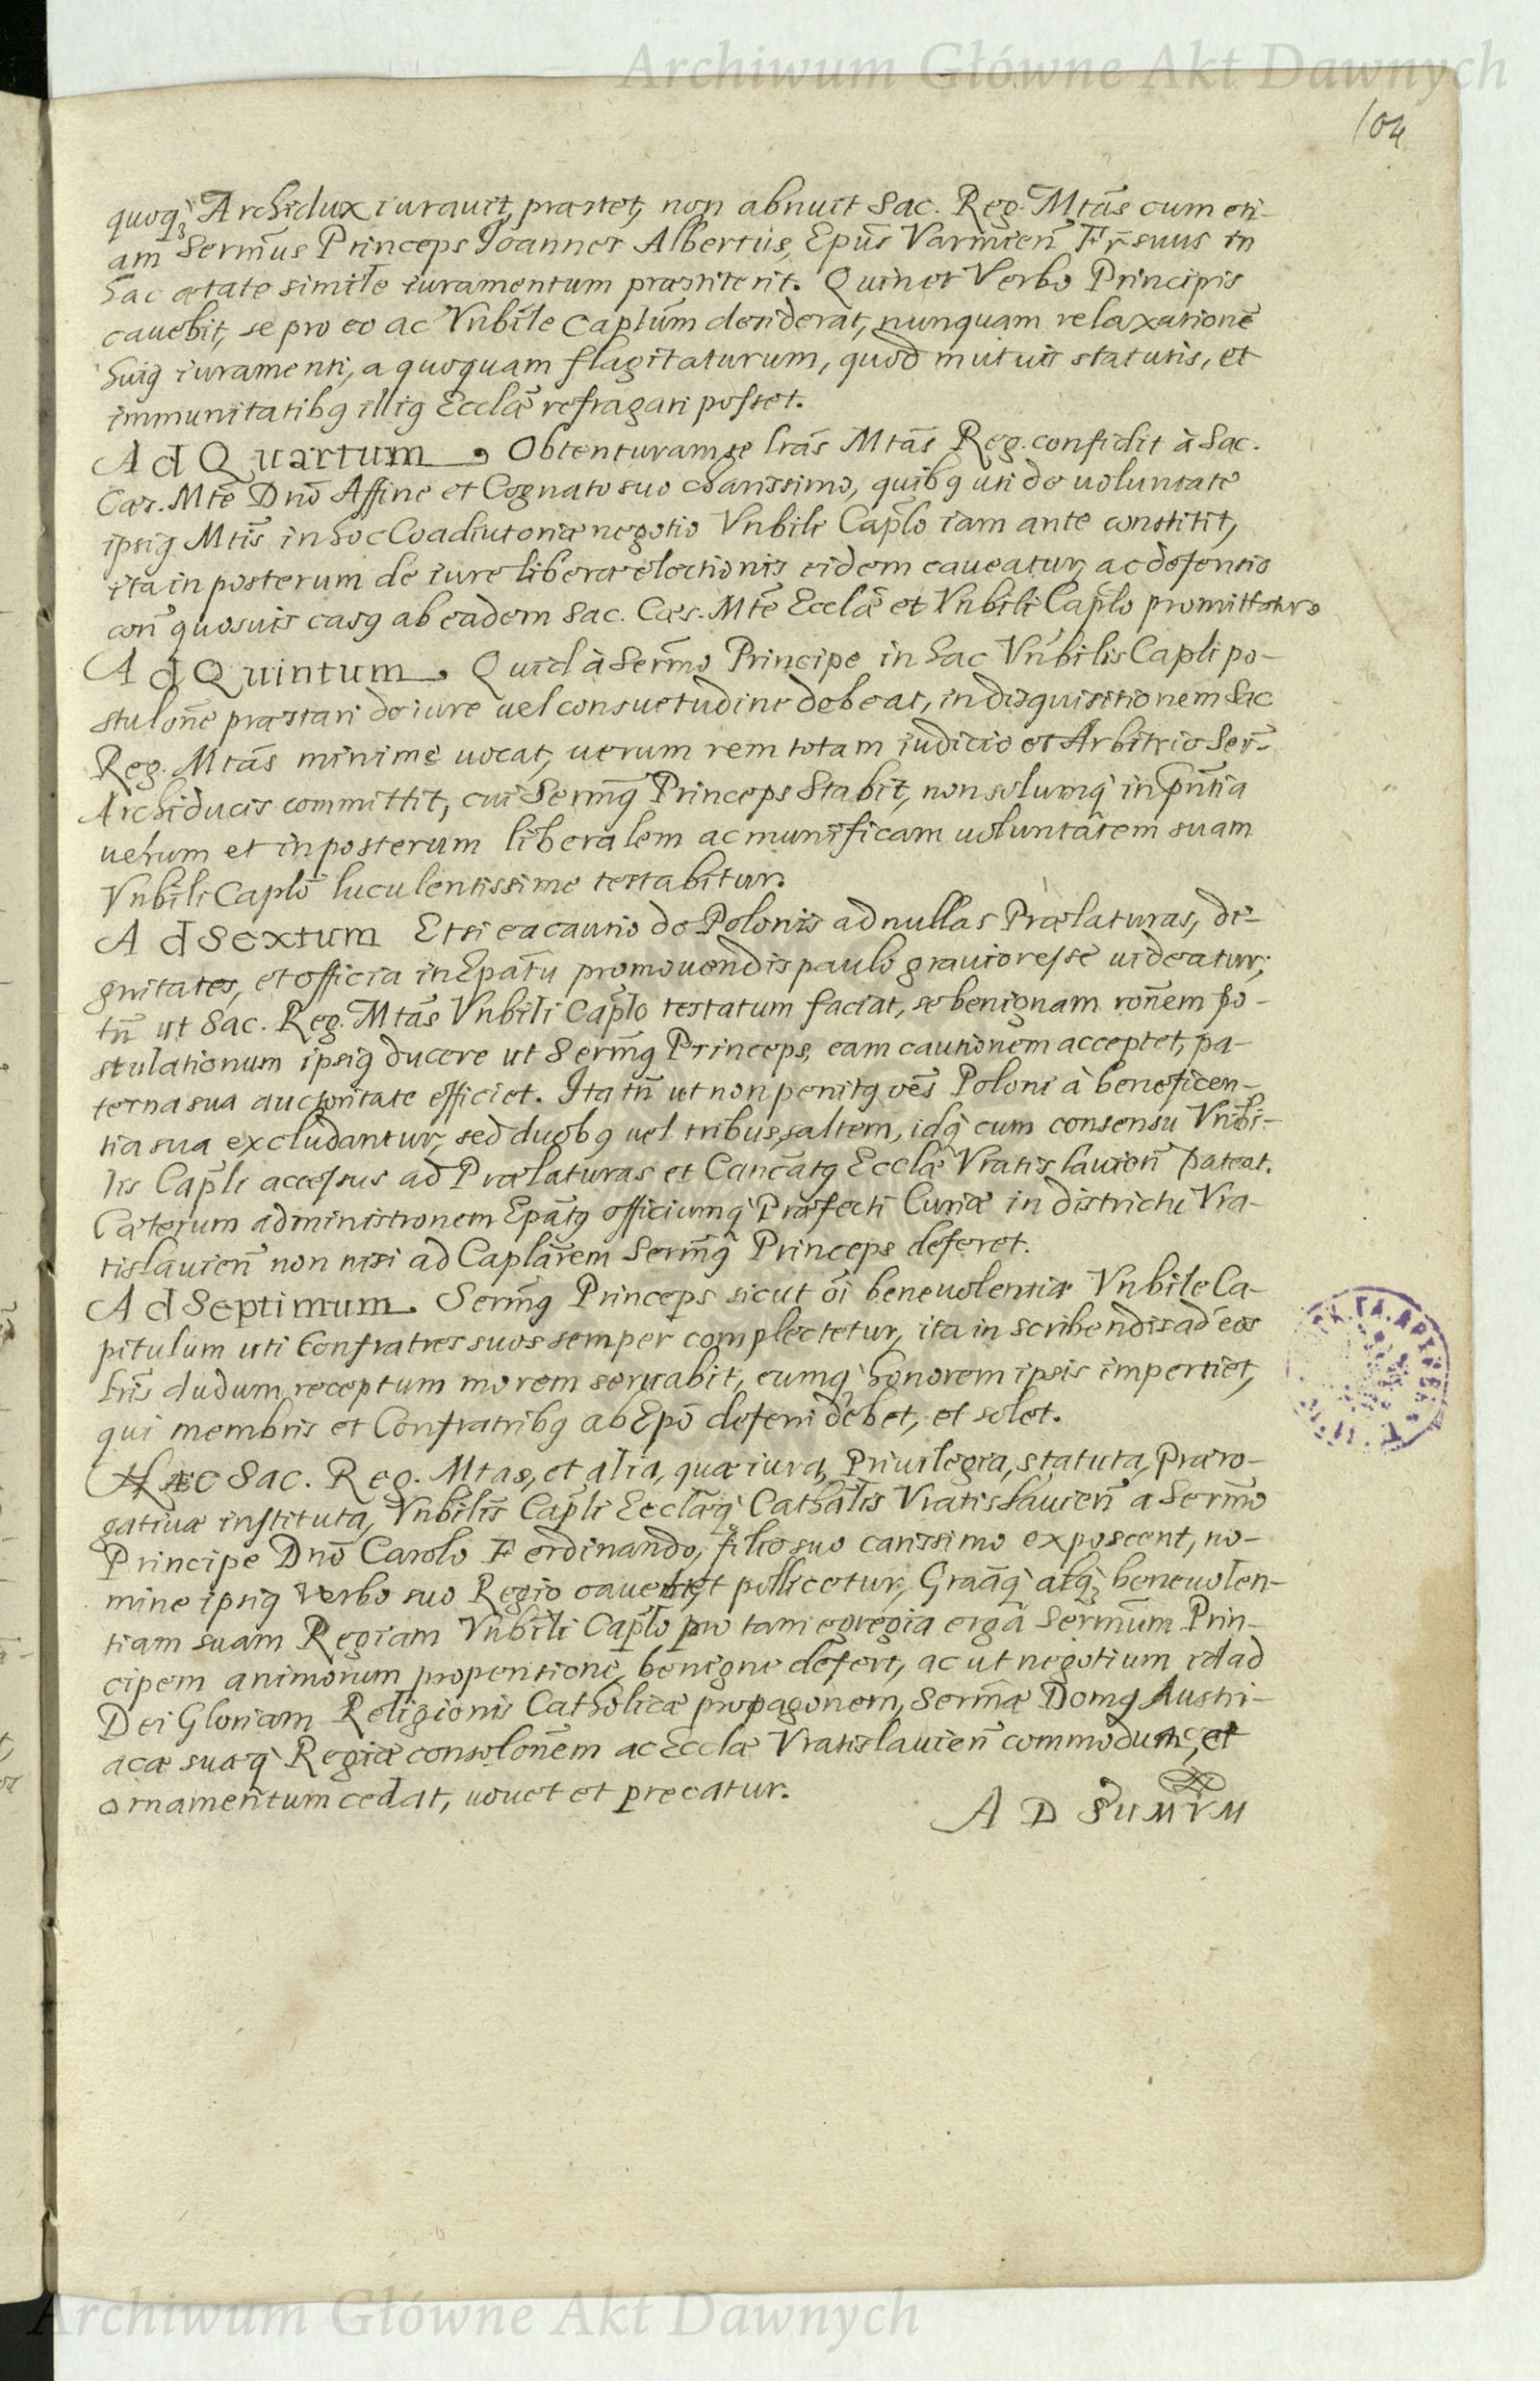 Archiwum Główne Akt Dawnych
104
quoqꝫ Archidux iurauit, præstet, non abnuit Sac. Reg. Mtãs cum eti-
am Serm̃us Princeps Ioannes Albertus, Epũs Varmień Fr̃ suus in
hac ætate simile iuramentum præstiterit. Quinet Verbo Principis
cauebit, se pro eo ac Vnbíle Caplũm desiderat, nunquam relaxationẽ
huiꝯ iuramenti, a quoquam flagitaturum, quod mutuis statutis, et
immunitatibꝯ illiꝯ Ecclæ̃ refragari posset.
Ad Quartum. Obtenturam se lrãs Mtãs Reg. confidit à Sac.
Cæs. Mtẽ Dnõ Affine et Cognato suo charissimo, quibꝯ uti de uoluntate
ipsiꝯ Mtĩs in hoc Coadiutoriæ negotio Vnbili Capl̃o iam ante constitit,
ita in posterum de iure liberæ electionis eidem caueatur, ac defensio
coñ quosuis casꝯ ab eadem Sac. Cæs. Mtẽ Ecclæ̃ et Vnbili Capl̃o promittatur.
Ad Quintum. Quid à Serm̃o Principe in hac Vnb̃ilis Capl̃i po-
stulonẽ præstari de iure uel consuetudine debeat, in disquisitionem Sac
Reg. Mtãs minimè uocat, uerum rem totam iudicio et Arbitrio Ser̃
Archiducis committit, cui Serm̃ꝯ Princeps Stabit, non solumq̃ in pñtia
uerum et in posterum liberalem ac munificam uoluntãtem suam
Vnbíli Caplõ luculentissime testabitur.
Ad Sextum Etsi ea cautio de Polonis ad nullas Prælaturas, di-
gnitates, et officia in Epãtu promouendis paulò grauior esse uideatur;
tñ ut Sac. Reg. Mtãs Vnbili Capl̃o testatum faciat, se benignam rõnem po-
stulationum ipsiꝯ ducere ut Serm̃ꝯ Princeps, eam cautionem acceptet, pa-
terna sua auctoritate efficiet. Ita tñ ut non penitꝯ oẽs Poloni à beneficen-
tia sua excludantur, sed duobꝯ uel tribus saltem, idq̃ cum consensu Vnbĩ-
lis Capl̃i accessus ad Prælaturas et Canc̃atꝯ Ecclæ̃ Vratislauień pateat.
Cæterum administronem Epãtꝯ officiumq̃ Præfecti Curiæ in districtu Vra-
tislauień non nisi ad Caplãrem Serm̃ꝯ Princeps deferet.
Ad Septimum. Serm̃ꝯ Princeps sicut õi beneuolentia Vnbile Ca-
pitulum uti Confratres suos semper complectetur, ita in scribendis ad eos
lrĩs dudum receptum morem seruabit, eumq̃ honorem ipsis impertiet,
qui membris et Confratribꝯ ab Epõ deferri debet, et solet.
Hæc Sac. Reg. Mtas, et alia, quæ iura, Priuilegia, statuta, Præro-
gatiuæ instituta, Vnbilis̃ Capl̃i Ecclæq̃ Cathãlis Vratislauień a Serm̃o
Principe Dnõ Carolo Ferdinando, filio suo carissimo exposcent, no-
mine ipsiꝯ verbo suo Regio cauet, et pollicetur, Graãq̃ atqꝫ beneuolen-
tiam suam Regiam Vnbíli Capl̃o pro tam egregia erga Serm̃um Prin-
cipem animorum propensione, benigne defert, ac ut negotium id ad
Dei Gloriam Religionis Catholicæ propagonem, Serm̃æ Domꝯ Austri-
acæ suæq̃ Regiæ consolonẽm ac Ecclæ Vratislauień commodum, et
ornamentum cedat, uouet et precatur.
AD SUMUM
Archiwum Główne Akt Dawnych